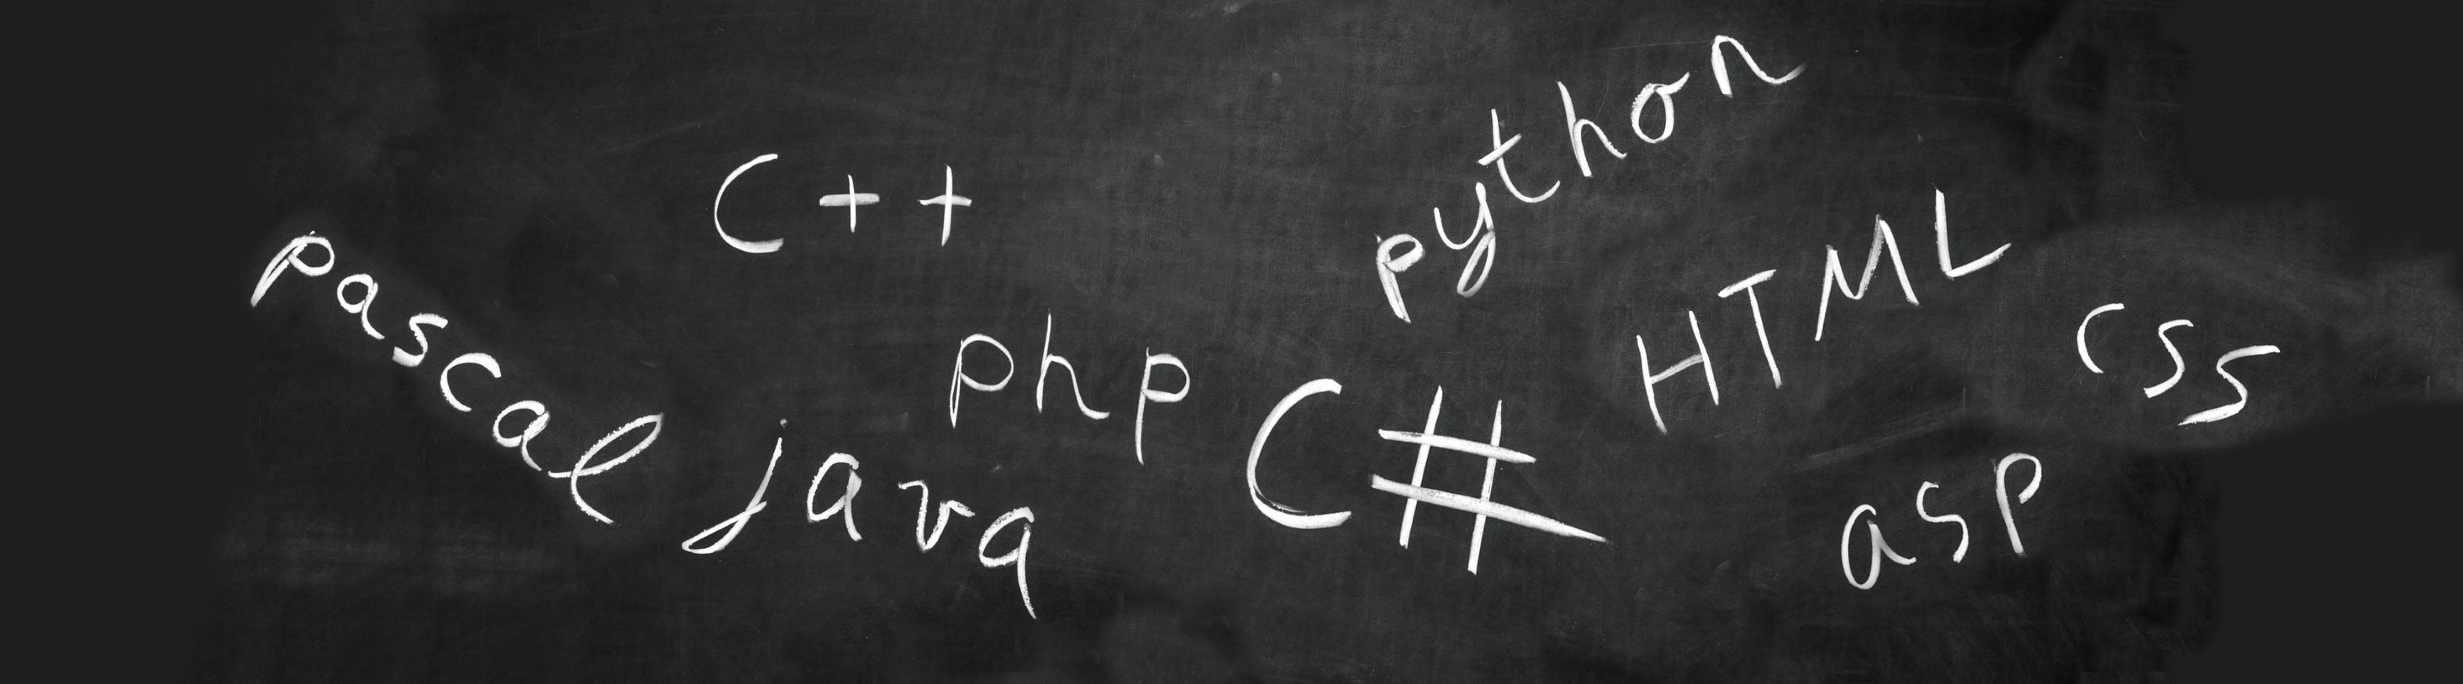 pascal
C++
java
php
C#
python
HTML
css
asp